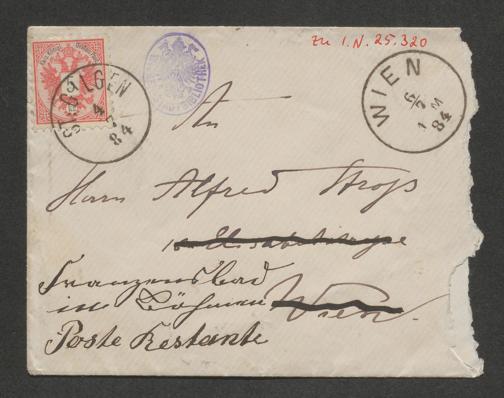 zu I.N. 25.320
ST. GILGEN
4
7
84
WIEN
5/7
1 M
84
An
Herrn Alfred Stross
Elisabethstrasse
Franzensbad
in Böhmen Wien.
Poste Restante